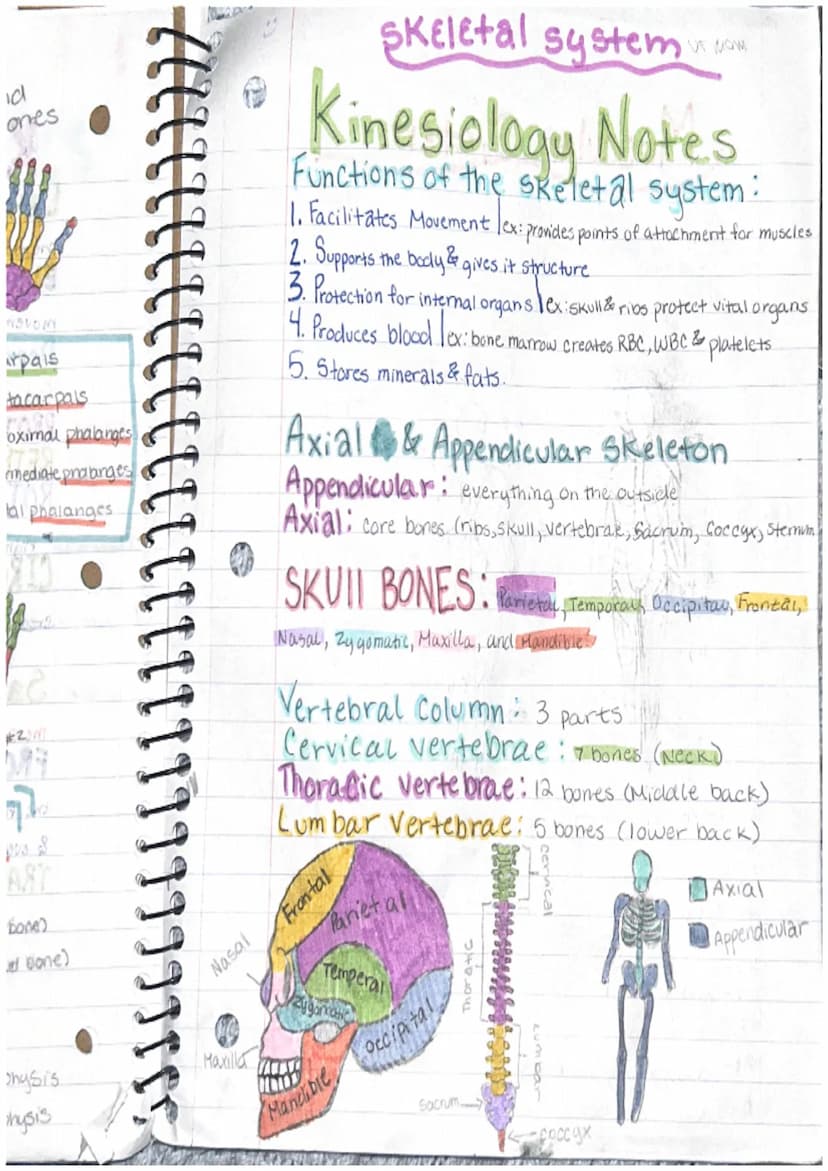 Skeletal system
Kinesiology Notes
Functions of the skeletal system:
1. Facilitates Movement | ex: provides points of attachment for muscles
2. Supports the body & gives it structure
3. Protection for internal organs | ex: skull & ribs protect vital organs
4. Produces blood | ex: bone marrow creates RBC, WBC & platelets
5. Stores minerals & fats.
Axial & Appendicular Skeleton
Appendicular: everything on the outside
Axial: core bones (ribs, skull, vertebrae, Sacrum, Coccyx, Sternum
SKUll BONES: Parietal, Temporal, Occipital, Frontal,
Nasal, Zygomatic, Maxilla, and Mandible
Vertebral Column: 3 parts
Cervical vertebrae: 7 bones (Neck)
Thoracic vertebrae: 12 bones (Middle back)
Lumbar Vertebrae: 5 bones (lower back)
Frontal
Parietal
Nasal
Temperal
Zygomatic
Occipital
Maxilla
Mandible
Cervical
Thoratic
Lumbar
Sacrum
coccyx
Axial
Appendicular
ones
tacarpals
oximal phalanges
al phalanges
bone)
bone)
physis
physis